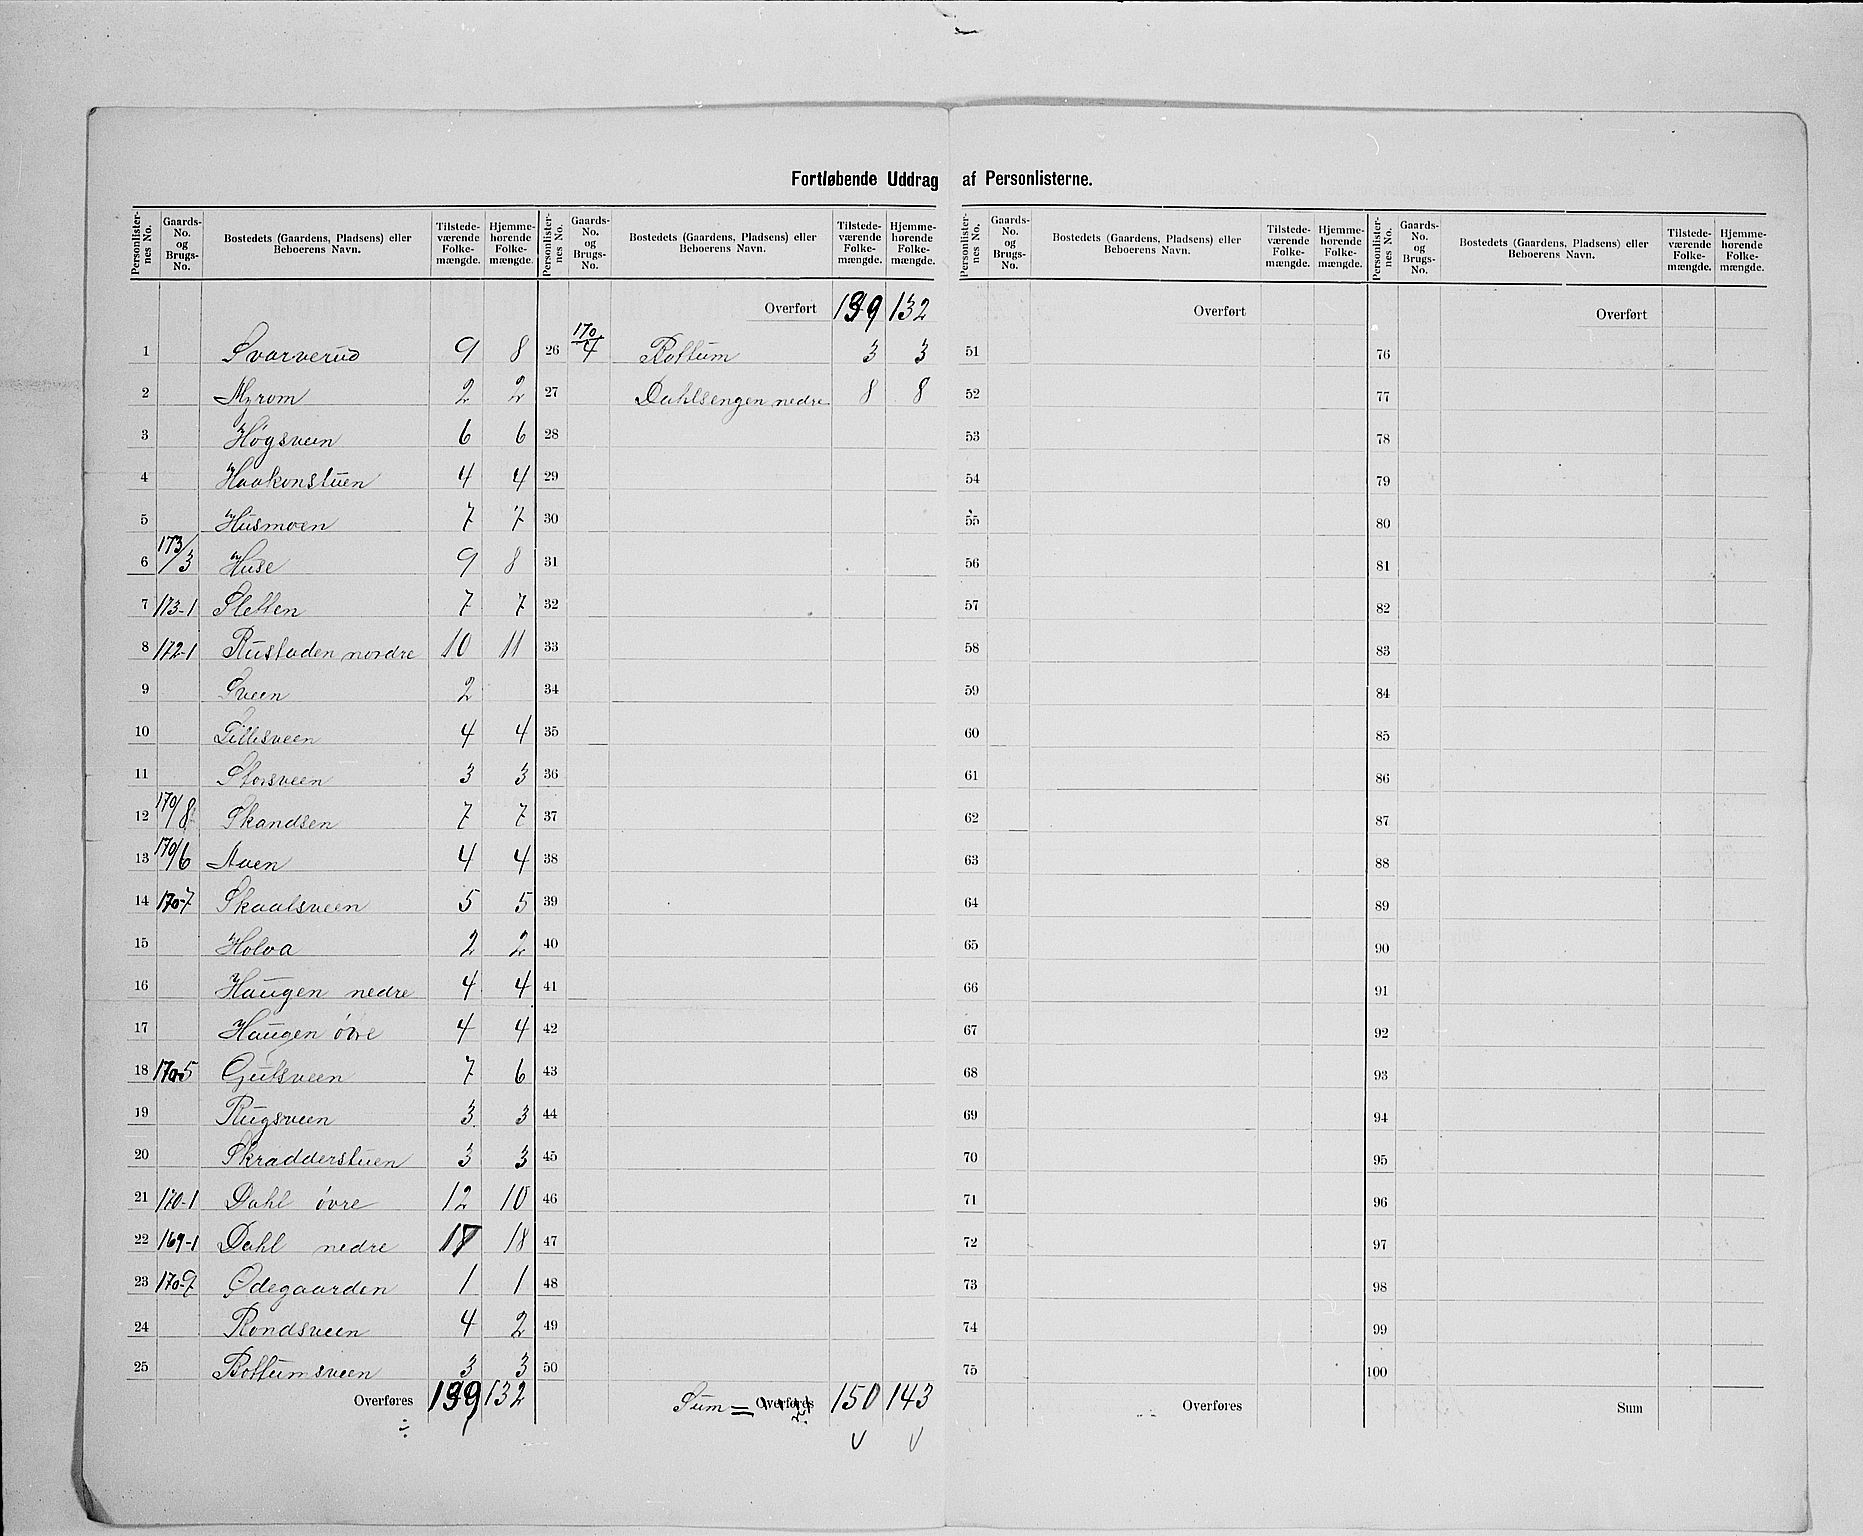 Fortløbende Uddrag af Personlisterne.
Personlister-nes No. Gaards-No. og Brugs-No. Bostedets (Gaardens, Pladsens) eller Beboerens Navn. Tilstede-værende Folke-mængde. Hjemme-hørende Folke-mængde.
1 Svarverud 9 8
2 Myrom 2 2
3 Høgsveen 6 6
4 Haakonstuen 4 4
5 Husmoen 7 7
6 173/3 Huse 9 8
7 173-1 Sletten 7 7
8 172-1 Rustaden nordre 10 11
9 Sveen 2
10 Lillesveen 4 4
11 Storsveen 3 3
12 170/8 Skandsen 7 7
13 170/6 Auen 4 4
14 170-7 Skaalsveen 5 5
15 Holva 2 2
16 Haugen nedre 4 4
17 Haugen övre 4 4
18 170-5 Gulsveen 7 6
19 Rugsveen 3 3
20 Skradderstuen 3 3
21 170-1 Dahl övre 12 10
22 169-1 Dahl nedre 17 18
23 170-9 Ødegaarden 1 1
24 Rondsveen 4 2
25 Bottumsveen 3 3
Overføres 139 132
Personlister-nes No. Gaards-No. og Brugs-No. Bostedets (Gaardens, Pladsens) eller Beboerens Navn. Tilstede-værende Folke-mængde. Hjemme-hørende Folke-mængde.
Overført 139 132
26 170/4 Bottum 3 3
27 Dahlsengen nedre 8 8
28
29
30
31
32
33
34
35
36
37
38
39
40
41
42
43
44
45
46
47
48
49
50
Sum = Overføres 150 143
Personlister-nes No. Gaards-No. og Brugs-No. Bostedets (Gaardens, Pladsens) eller Beboerens Navn. Tilstede-værende Folke-mængde. Hjemme-hørende Folke-mængde.
Overført
51
52
53
54
55
56
57
58
59
60
61
62
63
64
65
66
67
68
69
70
71
72
73
74
75
Overføres
Personlister-nes No. Gaards-No. og Brugs-No. Bostedets (Gaardens, Pladsens) eller Beboerens Navn. Tilstede-værende Folke-mængde. Hjemme-hørende Folke-mængde.
Overført
76
77
78
79
80
81
82
83
84
85
86
87
88
89
90
91
92
93
94
95
96
97
98
99
100
Sum